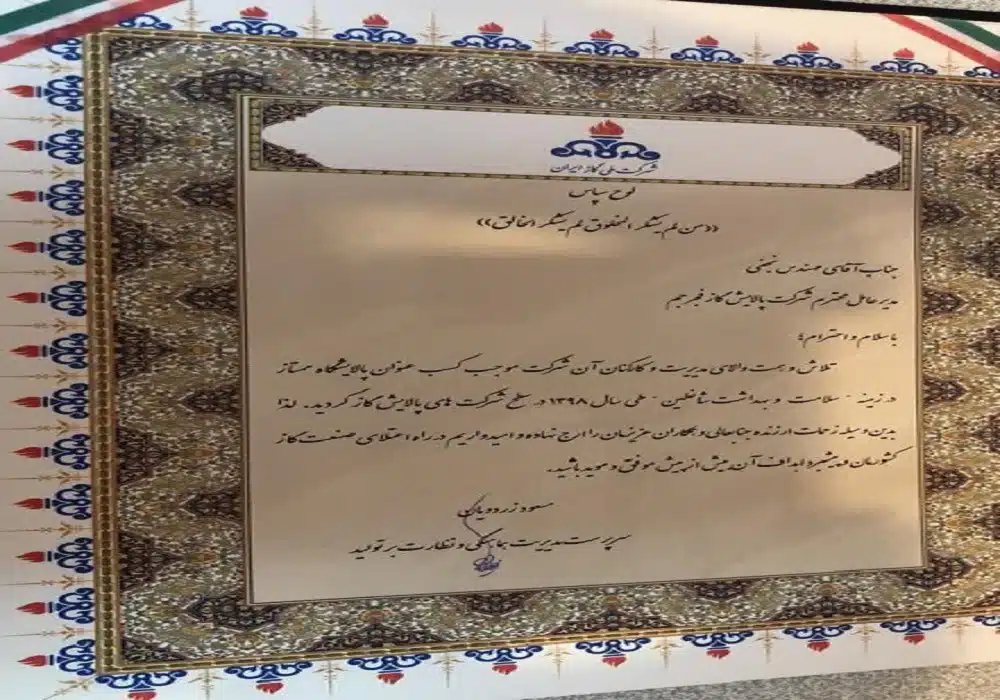 شرکت ملی گاز ایران
لوح سپاس
«من لم یشکر المخلوق لم یشکر الخالق»
جناب آقای مهندس نجفی
مدیر عامل محترم شرکت پالایش گاز فجر جم
با سلام و احترام؛
تلاش و همت والای مدیریت و کارکنان آن شرکت موجب کسب عنوان پالایشگاه ممتاز
در زمینه - سلامت و بهداشت شاغلین - طی سال ۱۳۹۸ در سطح شرکت های پالایش گاز گردید. لذا
بدین وسیله زحمات ارزنده جنابعالی و همکاران عزیزتان را ارج نهاده و امیدواریم در راه اعتلای صنعت گاز
کشورمان و پیشبرد اهداف آن بیش از پیش موفق و موید باشید.
مسعود زردویان
سرپرست مدیریت هماهنگی و نظارت بر تولید